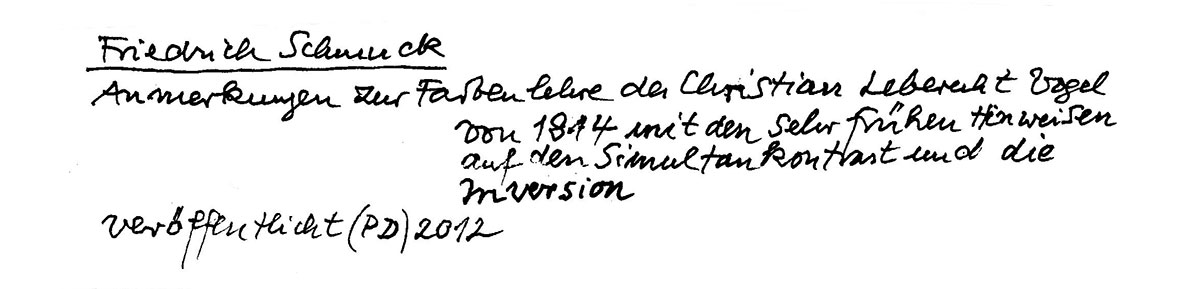 Friedrich Schmuck
Anmerkungen zur Farbenlehre des Christian Leberecht Vogel
von 1814 mit den sehr frühen Hinweisen
auf den Simultankontrast und die
Inversion
veröffentlicht (PD) 2012